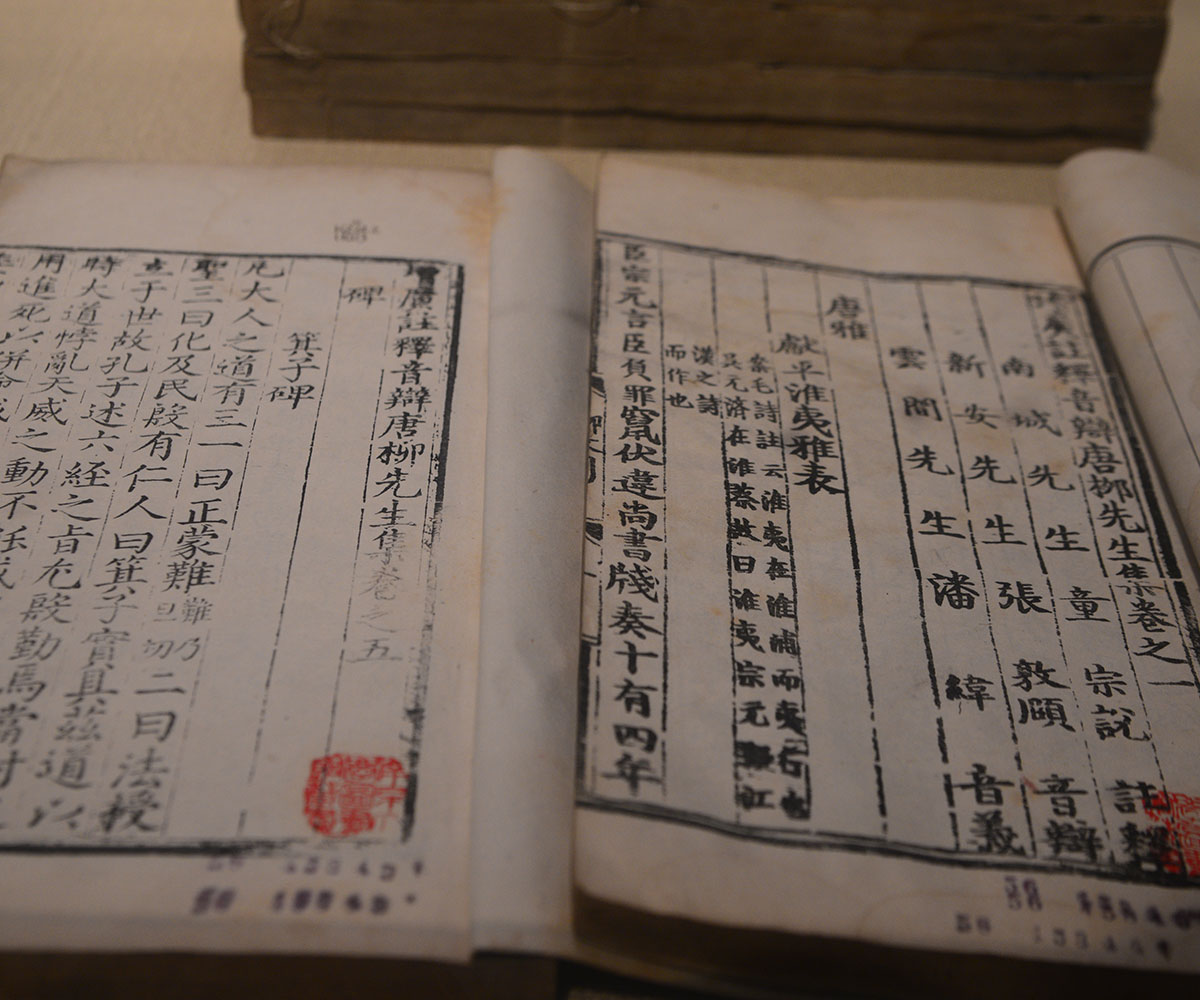 增廣註釋音辯唐柳先生集卷之一
南城先生童宗說註釋
新安先生張敦頤音辯
雲間先生潘緯音義
唐雅
獻平淮夷雅表
案毛詩註云淮夷在淮浦而夷行也
吳元濟在淮蔡故曰淮夷宗元江
漢之詩
而作也
臣宗元言臣負罪竄伏違尚書牋奏十有四年
增廣註釋音辯唐柳先生集卷之五
碑
箕子碑
凡大人之道有三一曰正蒙難難乃旦切二曰法授
聖三曰化及民殷有仁人曰箕子實具茲道以
立于世故孔子述六経之旨尤殷勤焉當紂
時大道悖亂天威之動不能戒
用進死以併命誠